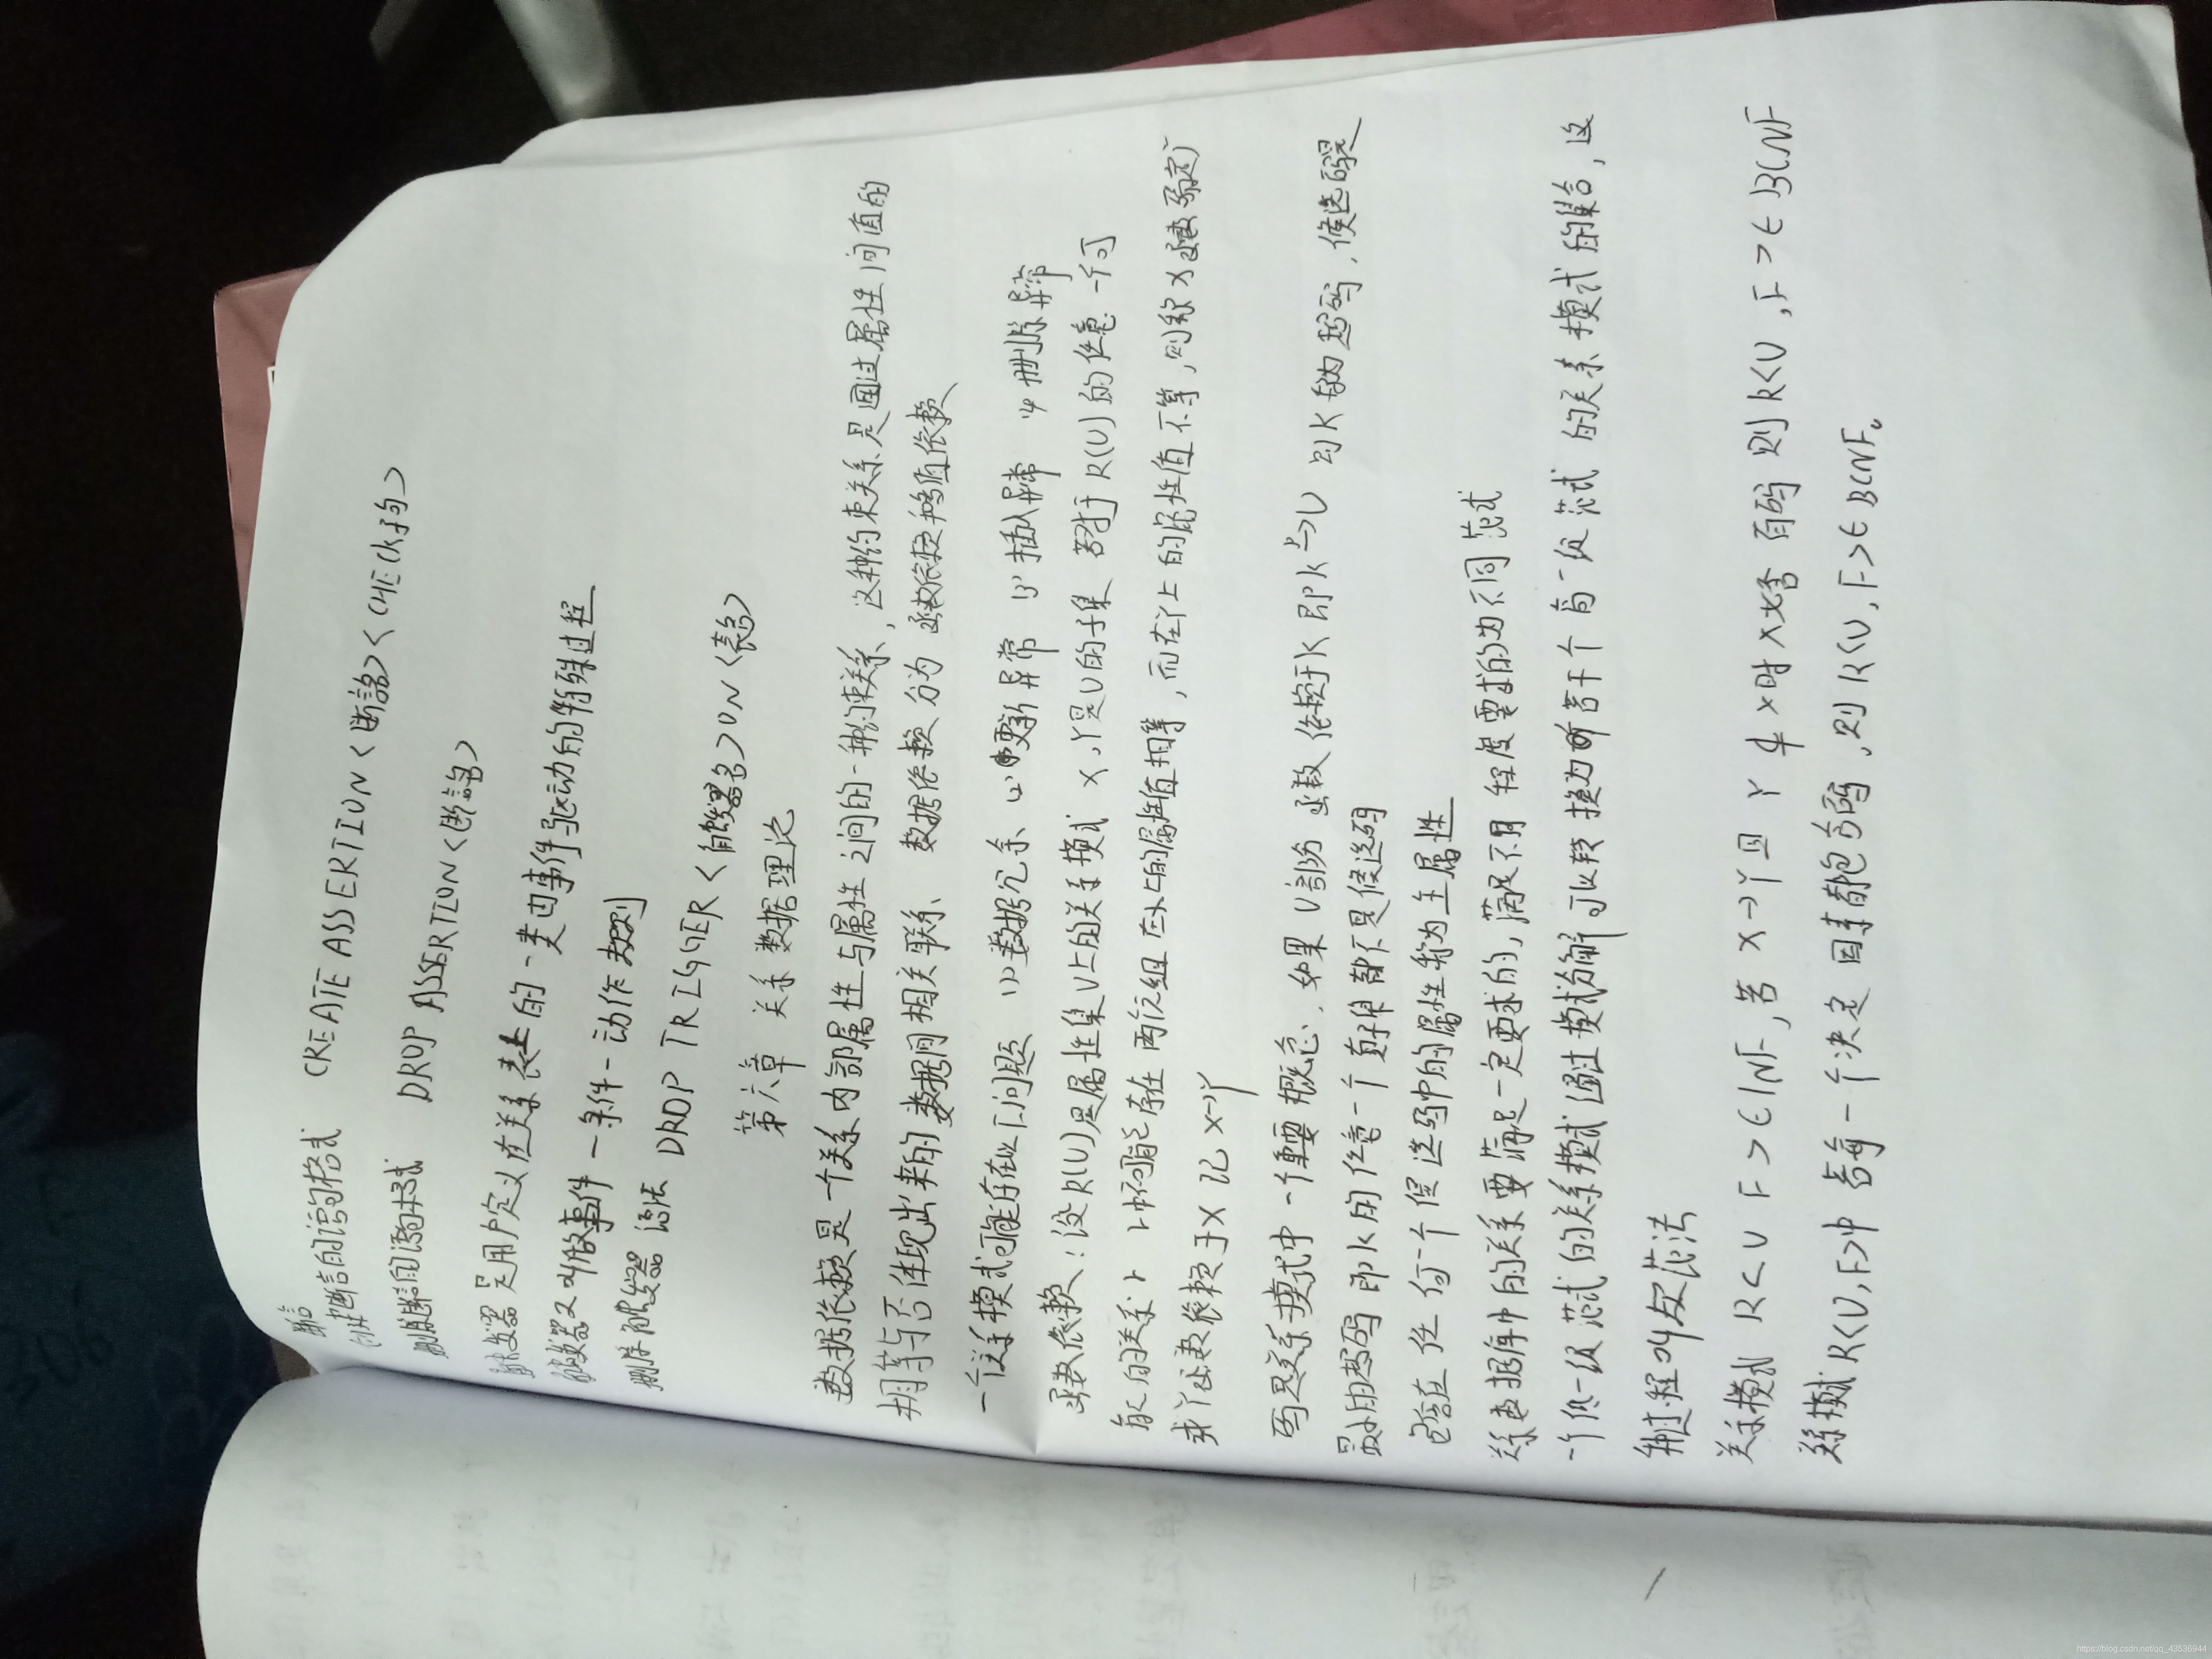 断言
创建断言的语句格式 CREATE ASSERTION <断言名> <CHECK子句>
删除断言的语句格式 DROP ASSERTION <断言名>
触发器是用户定义在关系表上的一类由事件驱动的特殊过程
触发器又叫做事件—条件—动作规则
删除触发器语法 DROP TRIGGER <触发器名> ON <表名>
第六章 关系数据理论
数据依赖是一个关系内部属性与属性之间的一种约束关系,这种约束关系是通过属性间值的
相等与否体现出来的数据间相关联系 数据依赖分为 函数依赖和多值依赖
一个关系模式可能存在以下问题 (1)数据冗余 (2)更新异常 (3)插入异常 (4)删除异常
函数依赖:设R(U)是属性集U上的关系模式 X,Y是U的子集 若对于R(U)的任意一个可
能的关系r r中不可能存在两个元组在X上的属性值相等,而在Y上的属性值不等,则称X函数确定Y
或Y函数依赖于X 记X→Y
码是关系模式中一个重要概念.如果U部分函数依赖于K 即K P→U 则K称为超码,候选码是
最小的超码 即K的任意一个真子集都不是候选码
包含在任何一个候选码中的属性称为主属性
关系数据库中的关系要满足一定要求的,满足不同程度要求的为不同范式
一个低一级范式的关系模式通过模式分解可以转换为若干个高一级范式的关系模式的集合,这
种过程叫规范法
关系模式 R<U F>∈1NF,若X→Y且Y⊄X时X必含有码 则R<U,F>∈BCNF
关系模式R<U,F>中若每一个决定因素都包含码,则R<U,F>∈BCNF。
https://blog.csdn.net/qq_43536944